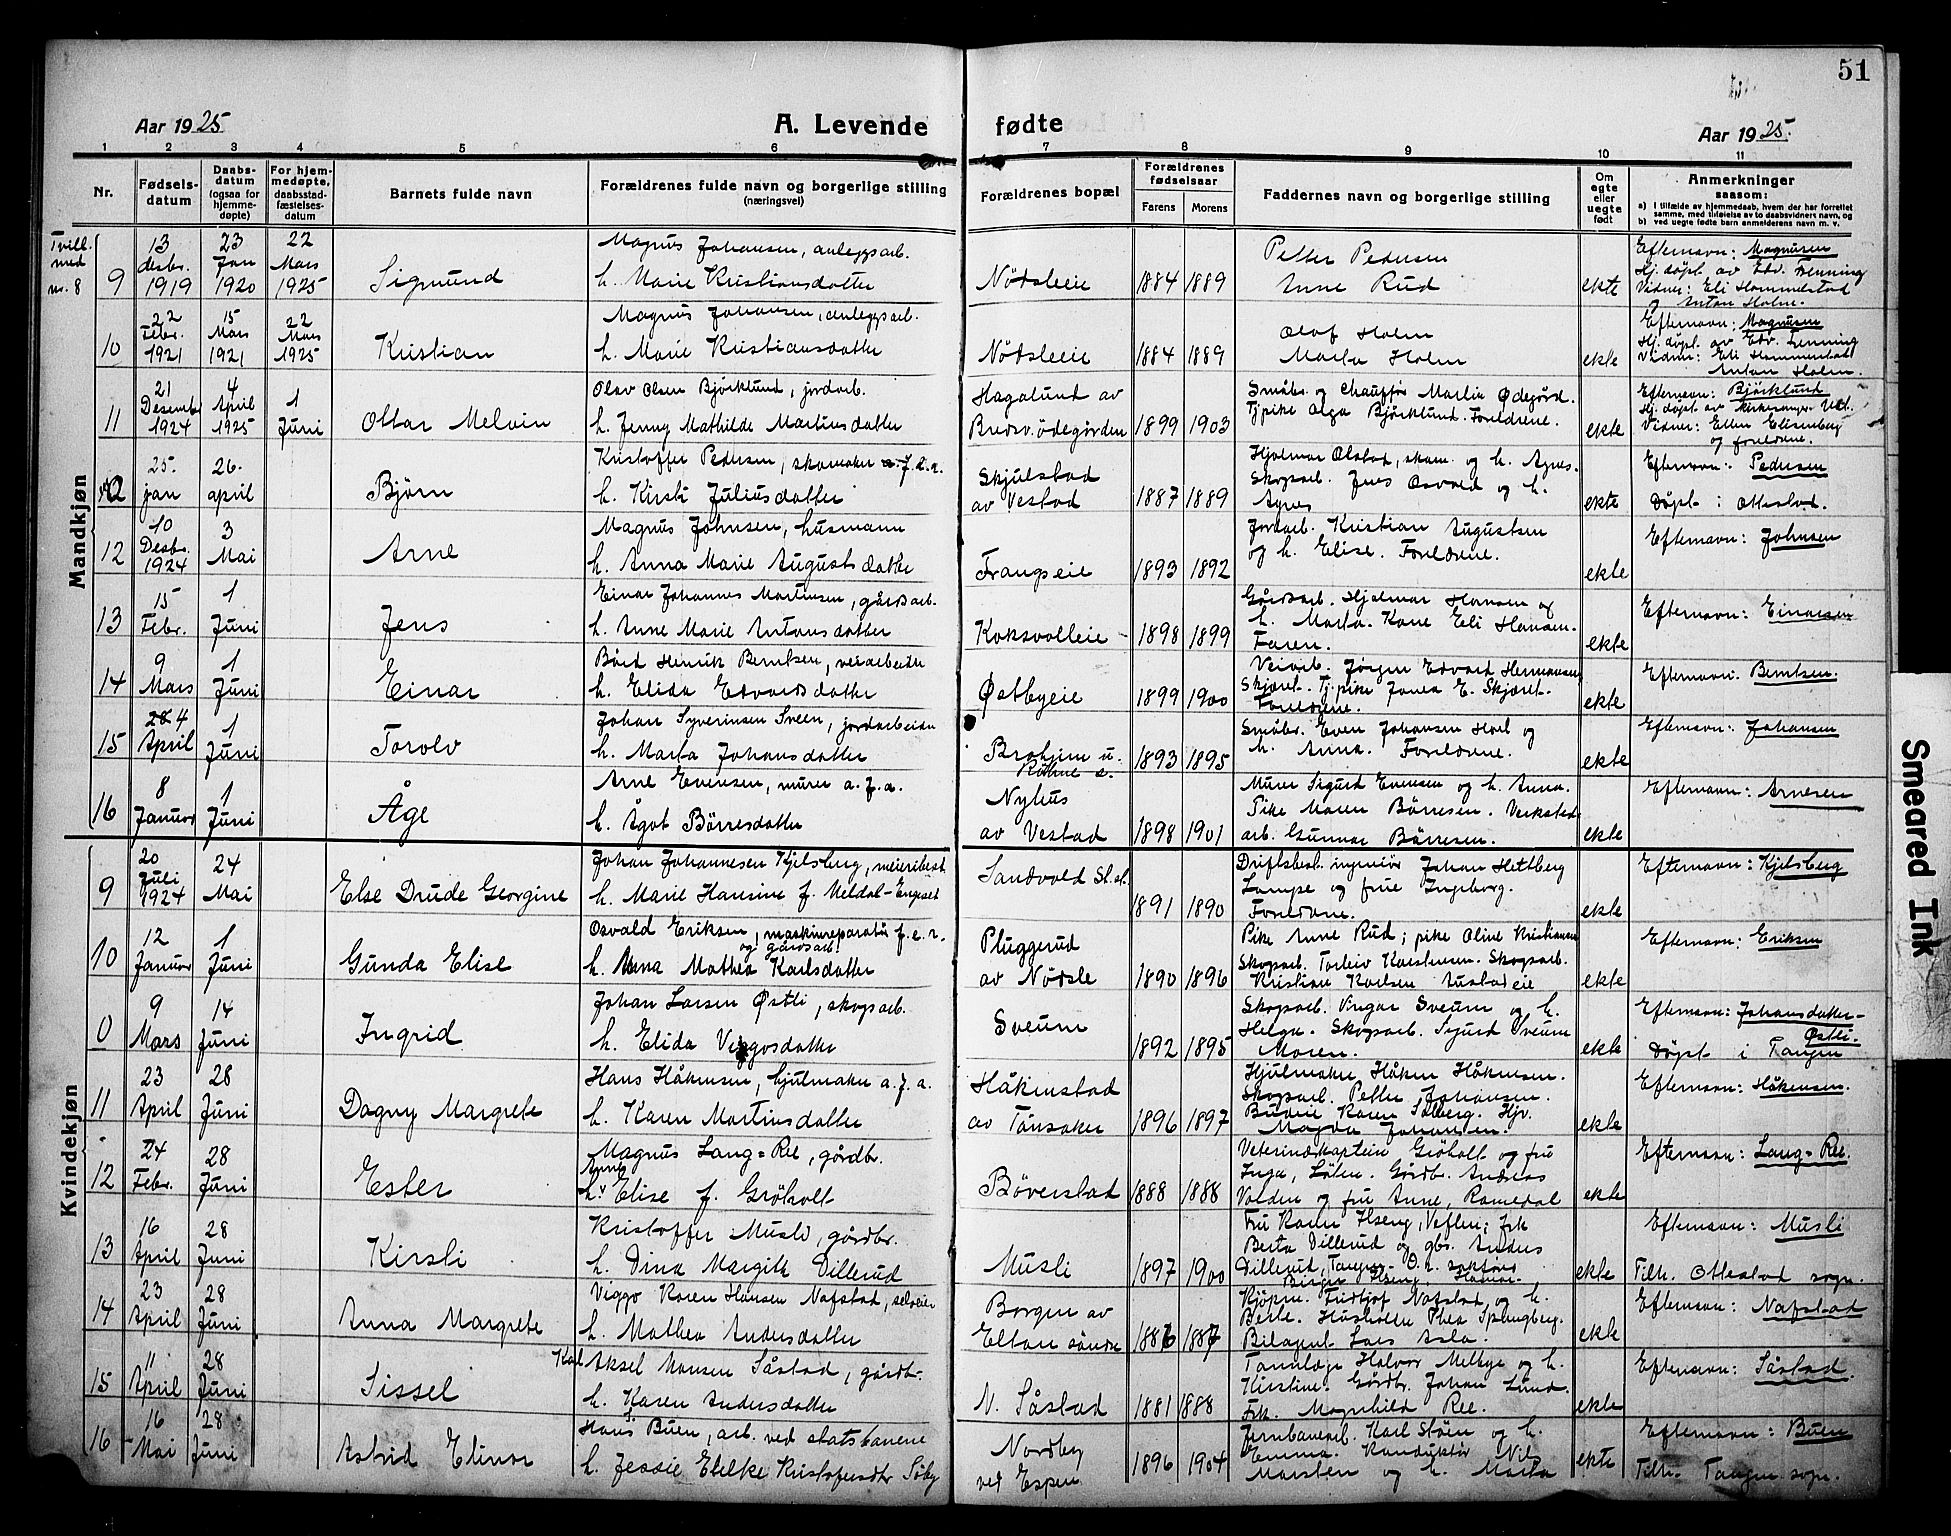 51
Aar 1925
A. Levende fødte
Aar 1925.
1 2 3 4 5 6 7 8 9 10 11
Nr.
Fødsels-
datum
Daabs-
datum
(ogsaa for
hjemme-
døpte)
For hjem-
medøpte,
daabsstad-
fæstelses-
datum
Barnets fulde navn
Forældrenes fulde navn og borgerlige stilling
(næringsvei)
Forældrenes bopæl
Forældrenes
fødselsaar
Farens Morens
Faddernes navn og borgerlige stilling
Om
egte
eller
uegte
født
Anmerkninger
saasom:
a) I tilfælde av hjemmedaab, hvem der har forrettet
samme, med tilføielse av to daabsvidners navn, og
b) ved uegte fødte barn anmelderens navn m. v.
Mandkjøn
Tvill.
med
nr. 8
9
13
desbr.
1919
23
Jan
1920
22
Mars
1925
Sigmund
Magnus Johansen, anleggsarb.
h. Marie Kristiansdatter
Nötsleie
1884 1889
Petter Pedersen
Anne Rud
ekte
Efternavn: Magnusen
Hj. döpt av Edv. Fenning
Vidner: Eli Hommerstad
og Anton Holm.
10
22
Febr.
1921
15
Mars
1921
22
Mars
1925
Kristian
Magnus Johansen, anleggsarb.
h. Marie Kristiansdatter
Nötsleie
1884 1889
Olaf Holm
Marta Holm
ekte
Efternavn: Magnusen
Hj. döpt av Edv. Fenning
Vidner: Eli Hommerstad
Anton Holm.
11
21
Desember
1924
4
April
1925
1
Juni
Ottar Melvin
Olav Olsen Bjørklund, jordarb.
h. Jenny Mathilde Martinsdatter
Hagalund av
Bredsv.ödegården
1899 1903
Småbr. og Chauffør Martin Ødegård.
Tj.pike Olga Bjørklund. Foreldrene.
ekte
Efternavn: Bjørklund
Hj. döpt av
Vidner: Ellen Elisenberg
og foreldrene.
25.
jan
26.
april
Björn
Kristoffer Pedersen, skomaker f. e. r.
h. Kirsti Juliusdatter
Skjulstad
av Vestad
1887 1889
Hjalmar Olstad, skom. og h. Agnes.
Skogsarb. Jens Osvald og h.
Agnes
ekte
Efternavn: Pedersen
Döpt i Ottestad.
12
10
Desbr.
1924
3
Mai
Arne
Magnus Johnsen, husmann
h. Anna Marie Augustsdatter
Frangseie
1893 1892
Jordarb. Kristian Augustsen
og h. Elise. Foreldrene.
ekte
Efternavn: Johnsen
13
15
Febr.
1
Juni
Jens
Einar Johannes Martinsen, gårdsarb.
h. Anne Marie Antonsdatter
Koksvolleie
1898 1899
Gårdsarb. Hjalmar Hansen og
h. Marta. Kone Eli Hansen.
Faren.
ekte
Efternavn: Einarsen
14
9
Mars
1
Juni
Einar
Bård Henrik Berntsen, veiarbeider
h. Elida Edvardsdatter
Østbyeie
1899 1900
Veiarb. Jørgen Edvard Hermansen
Skjæret. Tj.pike Jonea E. Skjæret.
Foreldrene.
ekte
Efternavn: Berntsen.
15
4
April
1
Juni
Torolv
Johan Syverinsen Sveen, jordarbeider
h. Marta Johansdatter
1893 1895
Småbr. Even Johansen Hoel og
h. Anna. Foreldrene.
ekte
Efternavn: Johansen
16
8
Januar
1
Juni
Åge
Arne Evensen, murer a. f. a.
h. Ågot Börresdatter
Nyhus
av Vestad
1898 1901
Murer Sigurd Evensen og h. Anna.
Pike Maren Börresen. Verksteds-
arb. Gunnar Börresen.
ekte
Efternavn: Arnesen
Kvindekjøn
9
20
Juli
1924
24
Mai
Else Drude Georgine
Johan Johannesen Kjelsberg, meieribest.
h. Marie Hansine f. Meldal-Engeset
Sandvold St. st.
1891 1890
Driftsbest. ingeniør Johan Hettberg
Lampe og frue Ingeborg.
Foreldrene.
ekte
Efternavn: Kjelsberg
10
12
Januar
1
Juni
Gunda Elise
Osvald Eriksen, maskinreparatør f. e. r.
og gårdsarb.
h. Anna Mathea Karlsdatter
Pluggerud
av Nötsle
1890 1896
Pike Anne Rud; pike Oline Kristiansen
Skogsarb. Torleiv Karlsen. Skogsarb.
Kristian Karlsen
ekte
Efternavn: Eriksen
0
9
Mars
14
Juni
Ingrid
Johan Larsen Østli, skogsarb.
h. Elida Viggosdatter
Sveum
1892 1895
Skogsarb. Yngar Sveum og h.
Helga. Skogsarb. Sjurd Sveum
Moren.
ekte
Efternavn: Johansdatter-
Østli.
Döpt i Tangen
11
23
April
28
Juni
Dagny Margrete
Hans Håkensen, hjulmaker a. f. a.
h. Karen Martinsdatter
Håkenstad
av Tönsaker
1896 1897
Hjulmaker Håken Håkensen.
Skogsarb. Petter Johansen.
Budeie Karen Solberg. Hjv.
Magda Johansen.
ekte
Efternavn: Håkensen.
12
24
Febr.
28
Juni
Ester
Magnus Lang=Ree, gårdbr.
h. Anna Elise f. Gröholt
Böverstad
1888 1888
Veterinærkaptein Gröholt og fru
Inga, Löten. Gårdbr. Andreas
Volden og fru Anne, Romedal
ekte
Efternavn: Lang=Ree.
13
16
April
28
Juni
Kirsti
Kristoffer Musli, gårdbr.
h. Dina Margith Dillerud
Musli
1897 1900
Fru Karen Ilseng, Veflen; frk
Berta Dillerud og gbr. Anders
Dillerud, Tangen.
Birger Ilseng, Hamar.
ekte
Efternavn: Musli
Tilh. Ottestad sogn.
14
23
April
28
Juni
Anna Margrete
Viggo Karen Hansen Nafstad, selveier
h. Mathea Andersdatter
Borgen av
Elton söndre
1886 1887
Kjöpm. Fridtjof Nafstad og h.
Berte. Husholder. Thea Spangberg.
Bilagent Lars Asla.
ekte
Efternavn: Nafstad
15
11
April
28
Juni
Sissel
Karl Aksel Hansen Såstad, gårdbr.
h. Karen Andersdatter
N. Såstad
1881 1888
Tannlæge Halvor Melbye og h.
Kirstine. Gårdbr. Johan Lund.
Frk. Magnhild Ree.
ekte
Efternavn: Såstad.
16
16
Mai
28
Juni
Astrid Elinor
Hans Buen, arb. ved statsbanene
h. Jessie Elilke Kristofersdtr Söby
Nordby
ved Espen
1896 1904
Jernbanearb. Karl Stöen og h.
Emma. Konduktör Nils
Marsten og h. Marta
ekte
Efternavn: Buen
Tilh. Tangen sogn.
Smeared Ink